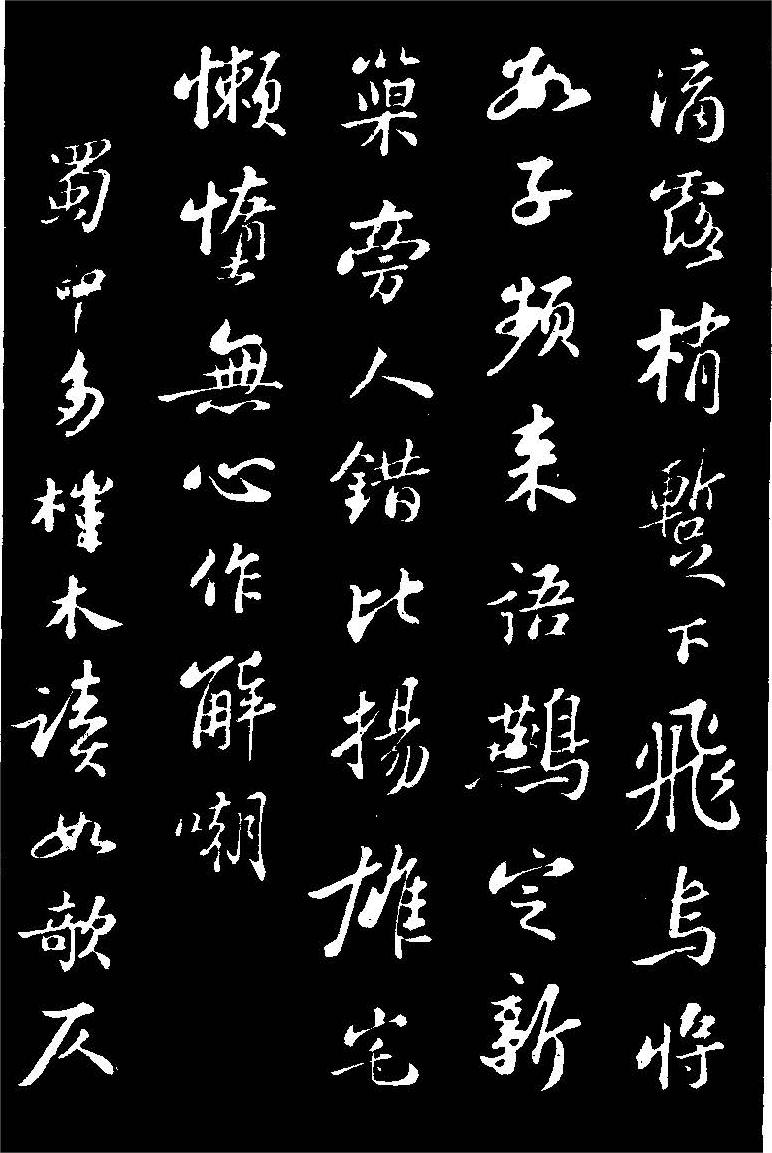 滴露梢暫下飛烏將
數子頻来語鷰定新
巢旁人錯比揚雄宅
懶惰無心作解嘲
蜀中多榿木讀如欹仄